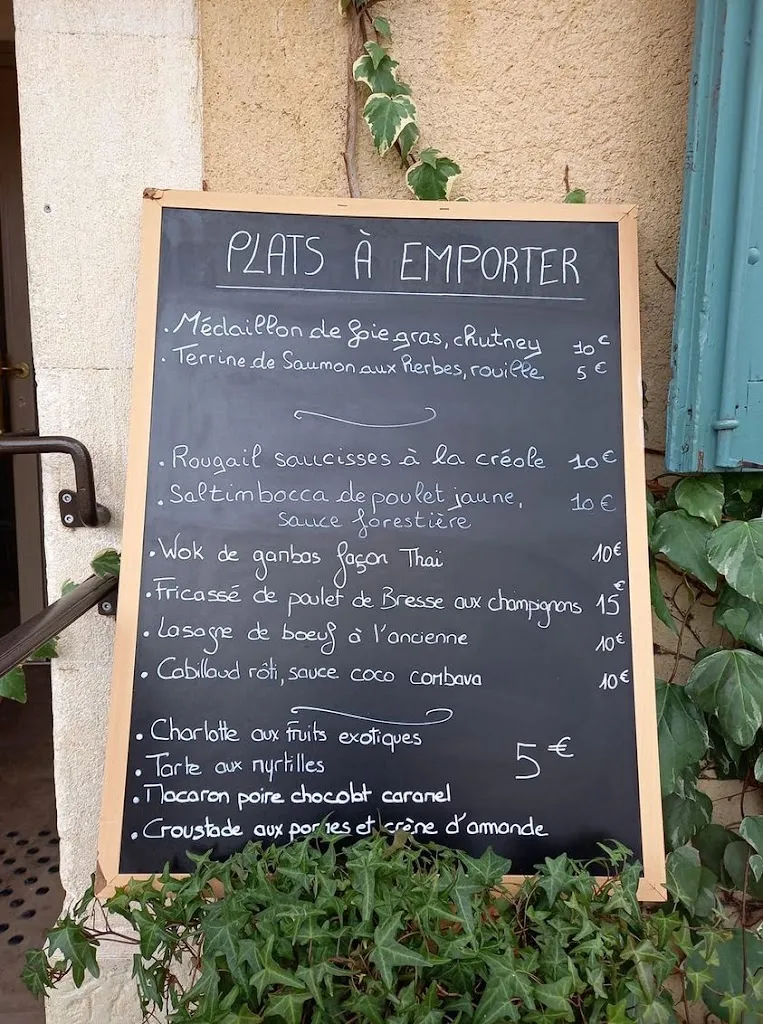 PLATS À EMPORTER
. Médaillon de foie gras, chutney 10€
. Terrine de Saumon aux herbes, rouille 5€
. Rougail saucisses à la créole 10€
. Saltimbocca de poulet jaune, 10€
sauce forestière
. Wok de gambas façon Thaï 10€
. Fricassé de poulet de Bresse aux champignons 15€
. Lasagne de boeuf à l'ancienne 10€
. Cabillaud rôti, sauce coco combava 10€
. Charlotte aux fruits exotiques
. Tarte aux myrtilles 5€
. Macaron poire chocolat caramel
. Croustade aux pommes et crème d'amande